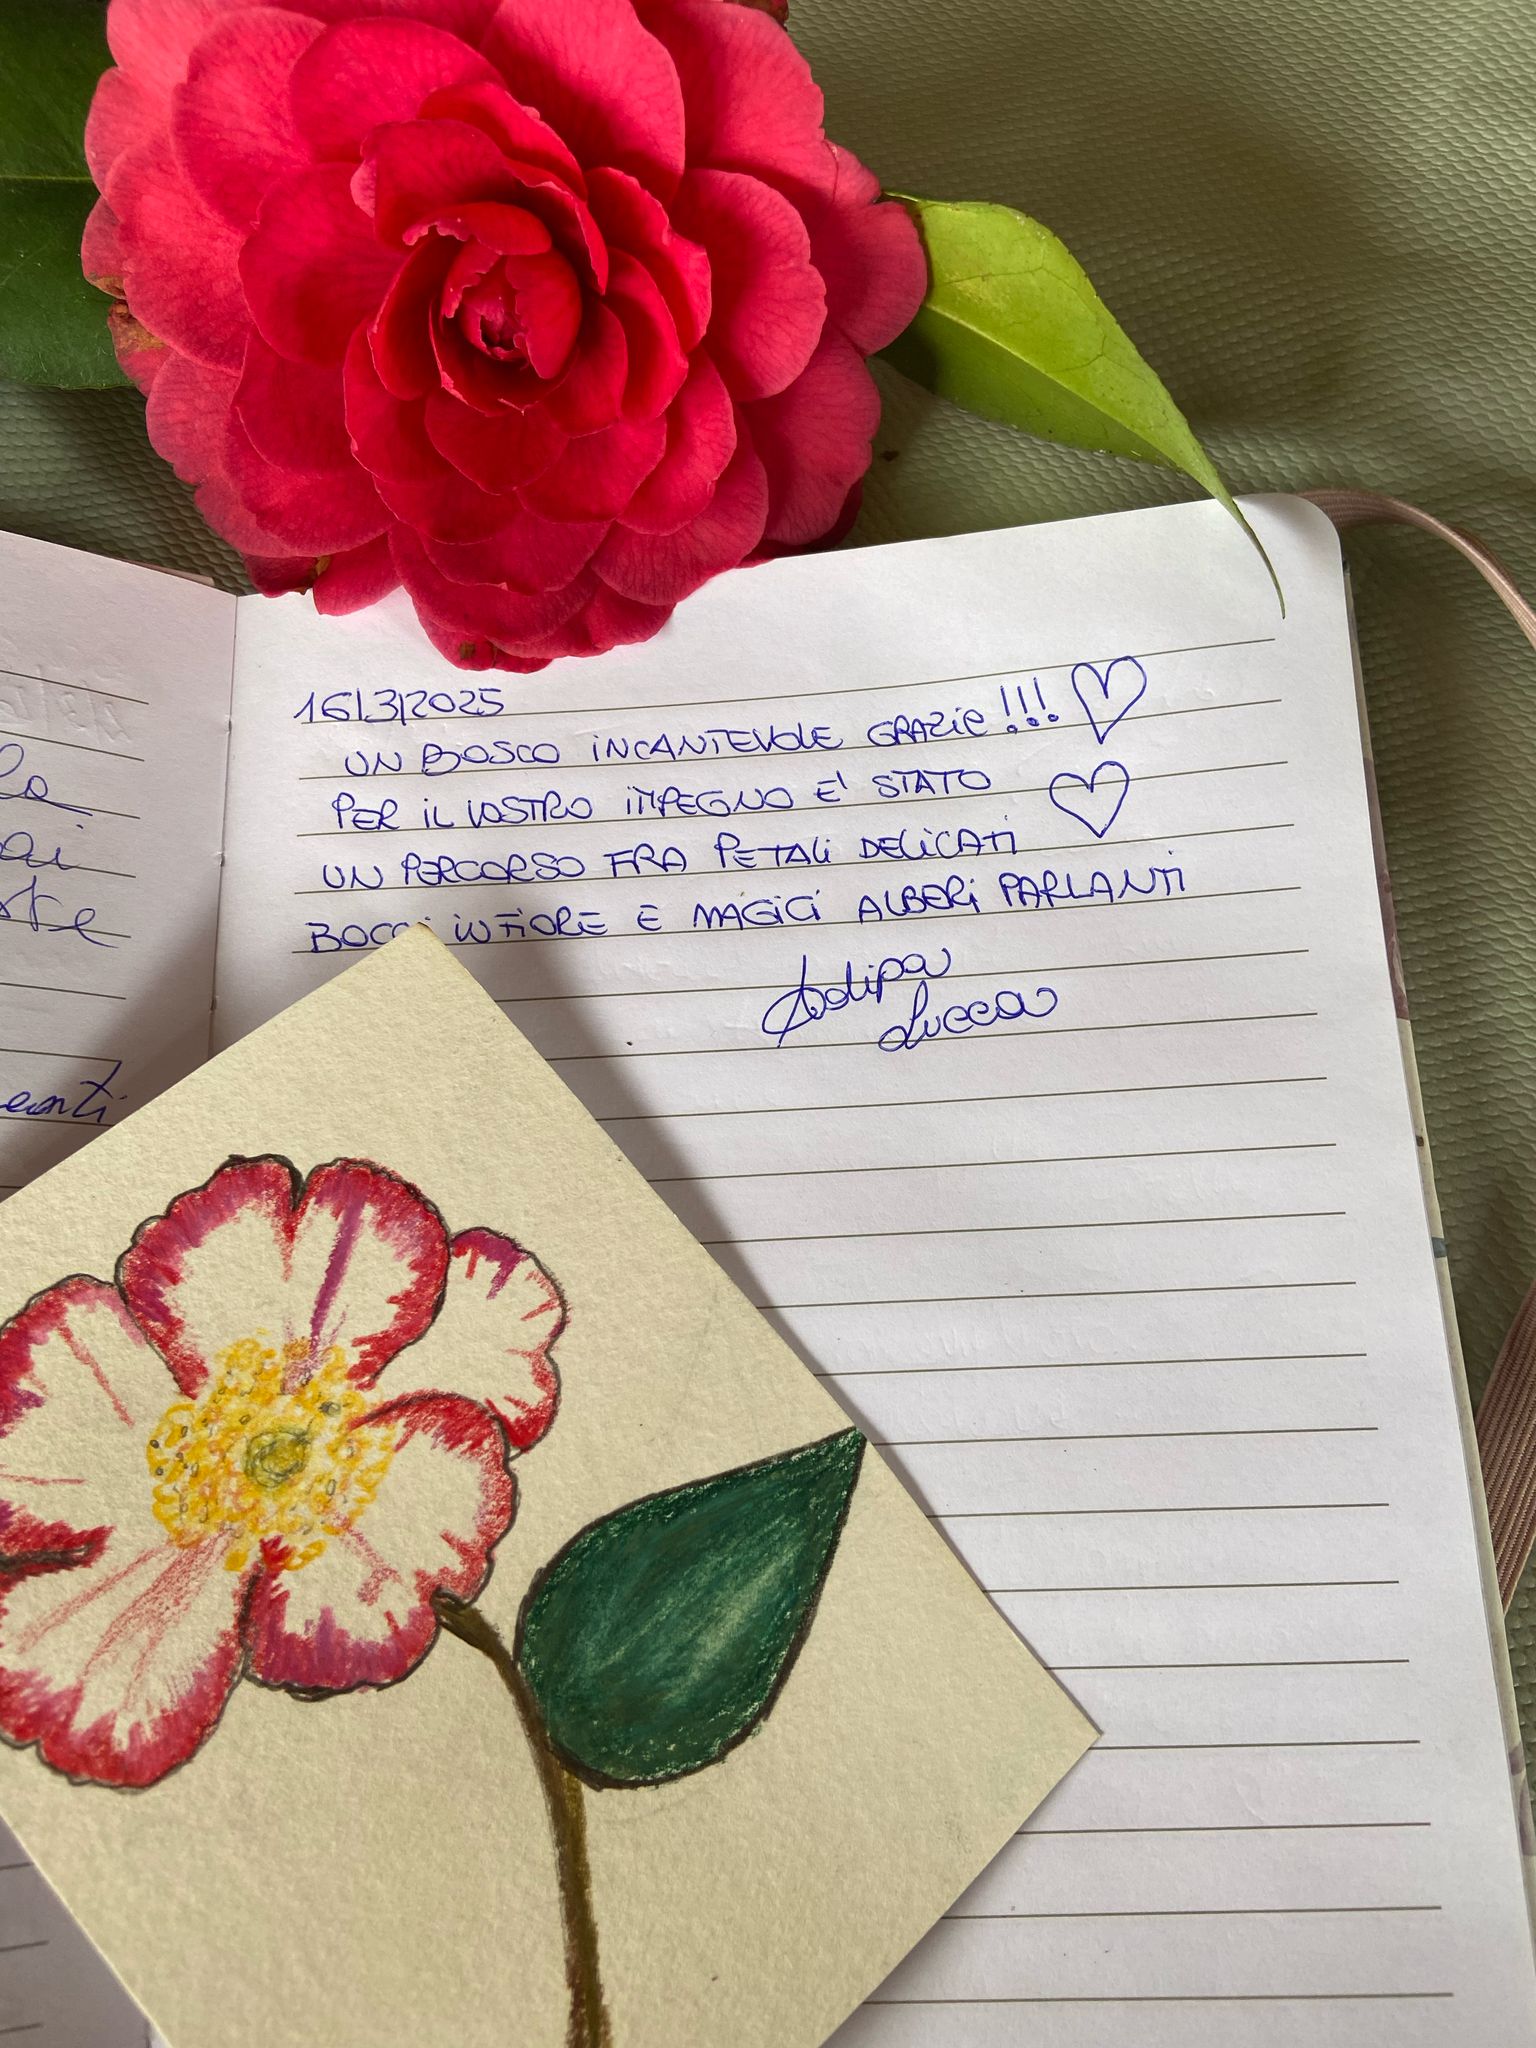 16/3/2025
UN BOSCO INCANTEVOLE GRAZIE !!!
PER IL VOSTRO IMPEGNO E' STATO
UN PERCORSO FRA PETALI DELICATI
BOCCI IN FIORE E MAGICI ALBERI PARLANTI
Lucca